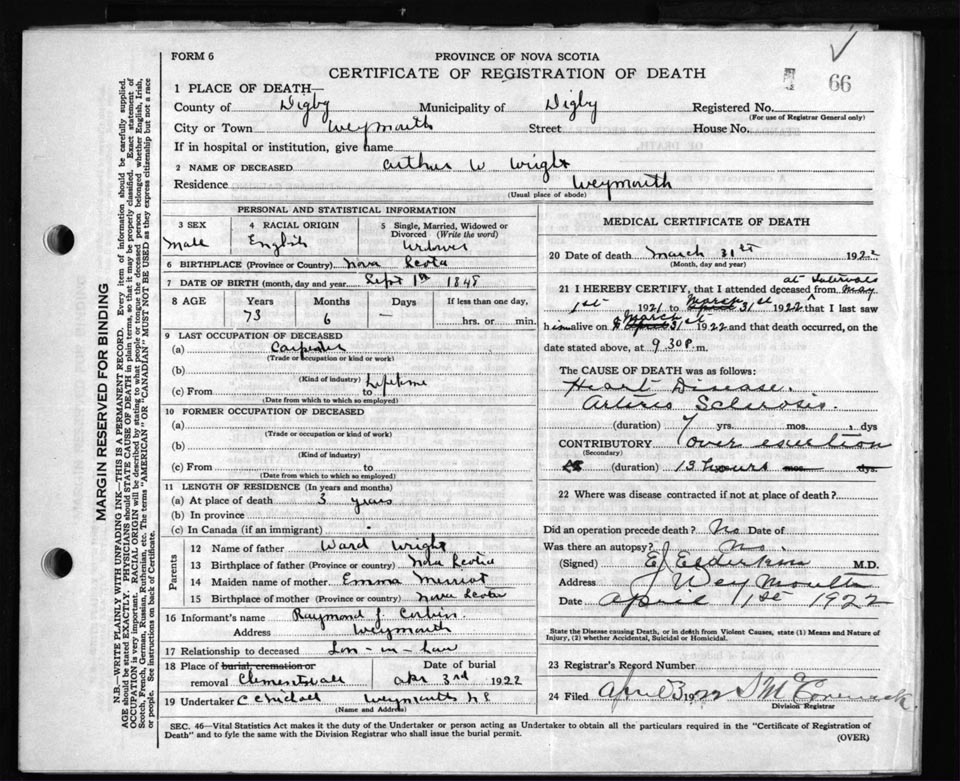 FORM 6
PROVINCE OF NOVA SCOTIA
CERTIFICATE OF REGISTRATION OF DEATH
66
1 PLACE OF DEATH—
County of Digby Municipality of Digby Registered No.
(For use of Registrar General only)
City or Town Weymouth Street House No.
If in hospital or institution, give name
2 NAME OF DECEASED Arthur W Wright
Residence Weymouth
(Usual place of abode)
PERSONAL AND STATISTICAL INFORMATION
3 SEX Male
4 RACIAL ORIGIN English
5 Single, Married, Widowed or Divorced (Write the word)
6 BIRTHPLACE (Province or Country) Nova Scotia
7 DATE OF BIRTH (month, day and year) Sept 1st 1848
8 AGE Years Months Days If less than one day,
73 6 — hrs. or min.
9 LAST OCCUPATION OF DECEASED
(a) Carpenter
(Trade or occupation or kind or work)
(b)
(Kind of industry)
(c) From to Lifetime
(Date from which to which so employed)
10 FORMER OCCUPATION OF DECEASED
(a)
(Trade or occupation or kind of work)
(b)
(Kind of industry)
(c) From to
(Date from which to which so employed)
11 LENGTH OF RESIDENCE (In years and months)
(a) At place of death 3 years
(b) In province
(c) In Canada (if an immigrant)
Parents
12 Name of father Ward Wright
13 Birthplace of father (Province or Country) Nova Scotia
14 Maiden name of mother Emma
15 Birthplace of mother (Province or country) Nova Scotia
16 Informant's name Raymond J.
Address Weymouth
17 Relationship to deceased Son-in-Law
18 Place of burial, cremation or removal Clementsvale
Date of burial Apr 3rd 1922
19 Undertaker Weymouth N S
(Name and Address)
MEDICAL CERTIFICATE OF DEATH
20 Date of death March 31st 1922
(Month, day and year)
at Intervals
21 I HEREBY CERTIFY, that I attended deceased from May
1st 1921 to March April 31st 1922 that I last saw
him alive on March April 31st 1922 and that death occurred, on the
date stated above, at 9.30 p.m.
The CAUSE OF DEATH was as follows:
Heart Disease.
Arterio Sclerosis.
(duration) 7 yrs. mos. dys
CONTRIBUTORY over exertion
(Secondary)
(duration) 13 hours mos. dys.
22 Where was disease contracted if not at place of death?
Did an operation precede death? No Date of
Was there an autopsy? No.
(Signed) M.D.
Address Weymouth
Date April 1st 1922
State the Disease causing Death, or in death from Violent Causes, state (1) Means and Nature of
Injury, (2) whether Accidental, Suicidal or Homicidal.
23 Registrar's Record Number
24 Filed April 3 1922
Division Registrar
SEC. 46—Vital Statistics Act makes it the duty of the Undertaker or person acting as Undertaker to obtain all the particulars required in the "Certificate of Registration of
Death" and to fyle the same with the Division Registrar who shall issue the burial permit.
(OVER)
MARGIN RESERVED FOR BINDING
N.B.—WRITE PLAINLY WITH UNFADING INK—THIS IS A PERMANENT RECORD. Every item of information should be carefully supplied.
AGE should be stated EXACTLY. PHYSICIANS should STATE CAUSE OF DEATH in plain terms, so that it may be properly classified. Exact statement of
OCCUPATION is very important. RACIAL ORIGIN will be described by stating to what people or tongue the deceased person belonged whether English, Irish,
Scotch, French, German, Russian, Ruthenian, etc. The terms "AMERICAN" or "CANADIAN" MUST NOT BE USED as they express citizenship but not a race
or people. See instructions on back of Certificate.